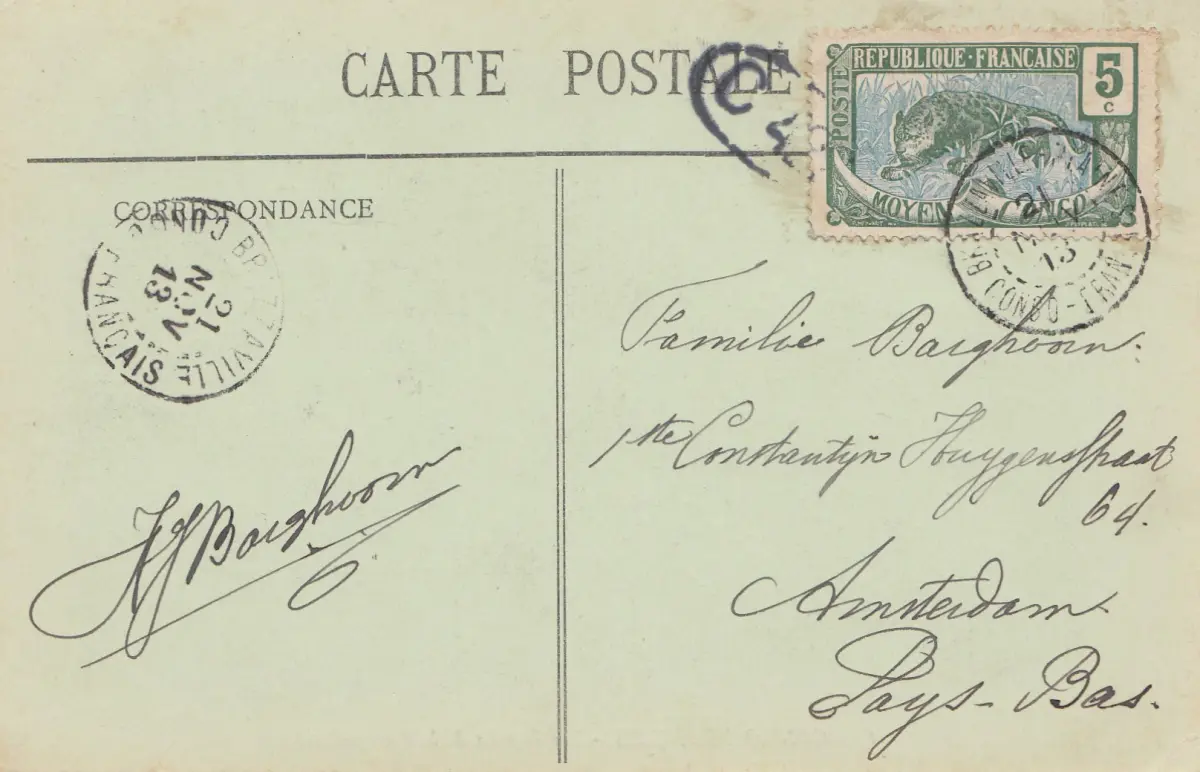 CARTE POSTALE
REPUBLIQUE·FRANÇAISE
5
c
POSTE
MOYEN CONGO
BRAZZAVILLE
21
NOV
13
CONGO-FRANÇAIS
CORRESPONDANCE
CONGO BRAZZAVILLE
21
NOV
13
FRANÇAIS
Familie Barghoorn.
1ste Constantijn Huygensstraat
64.
Amsterdam
Pays-Bas.
Barghoorn